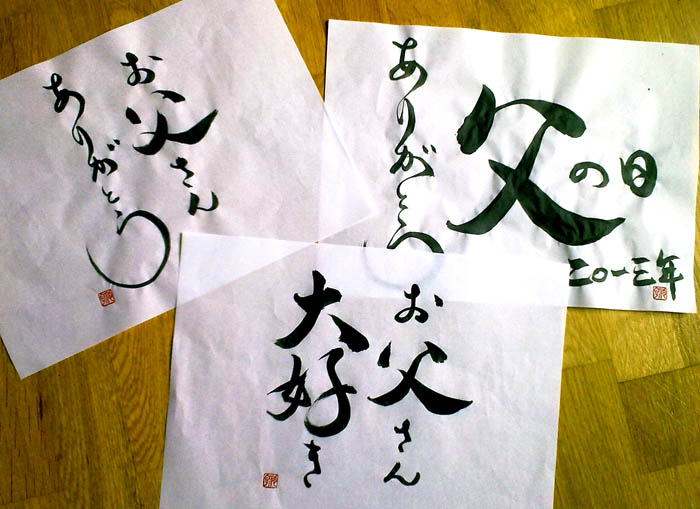 お父さん
ありがとう
父の日
ありがとう
二〇一三年
お父さん
大好き